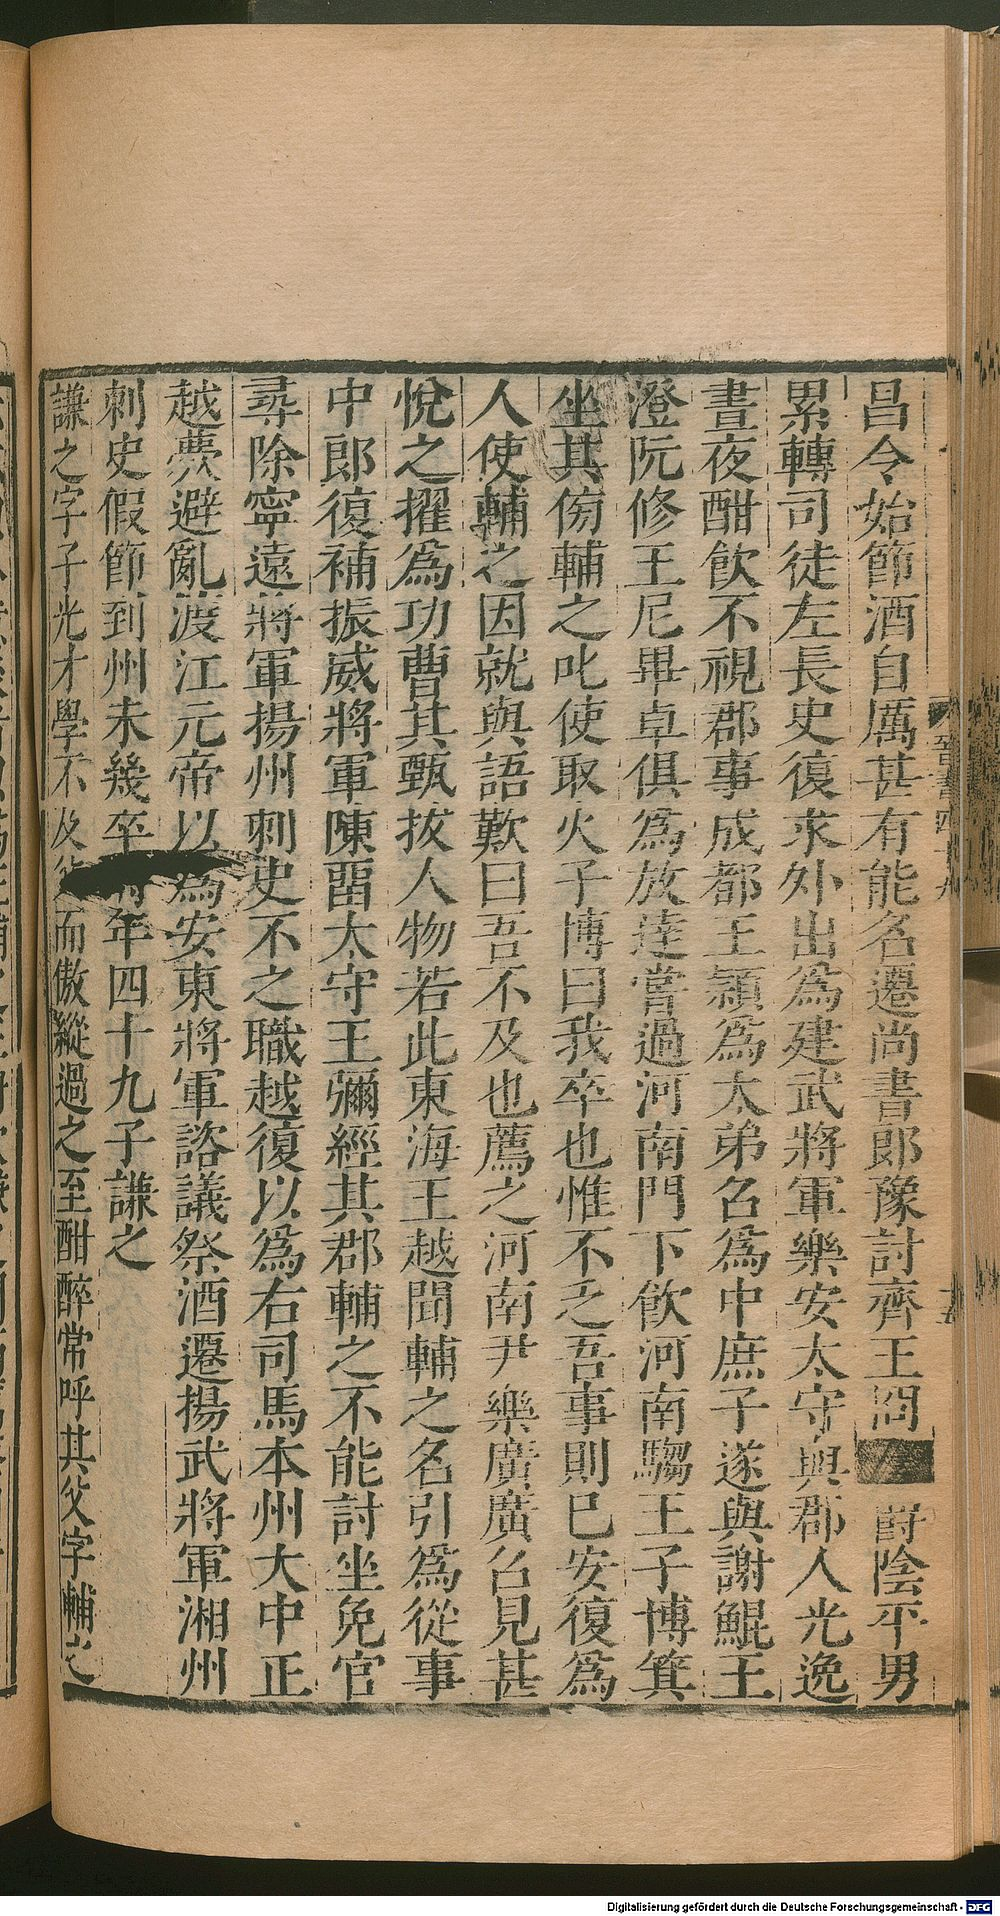 昌令始節酒自厲甚有能名遷尚書郎豫討齊王冏 爵陰平男
累轉司徒左長史復求外出爲建武將軍樂安太守與郡人光逸
晝夜酣飲不視郡事成都王穎爲太弟召爲中庶子遂與謝鯤王
澄阮修王尼畢卓俱爲放達嘗過河南門下飲河南騶王子博箕
坐其傍輔之叱使取火子博曰我卒也惟不乏吾事則已安復爲
人使輔之因就與語歎曰吾不及也薦之河南尹樂廣廣召見甚
悅之擢爲功曹其甄拔人物若此東海王越聞輔之名引爲從事
中郎復補振威將軍陳畱太守王彌經其郡輔之不能討坐免官
尋除寧遠將軍揚州刺史不之職越復以爲右司馬本州大中正
越薨避亂渡江元帝以爲安東將軍諮議祭酒遷揚武將軍湘州
刺史假節到州未幾卒 年四十九子謙之
謙之字子光才學不及 而傲縱過之至酣醉常呼其父字輔之
晉書四十九
十五
Digitalisierung gefördert durch die Deutsche Forschungsgemeinschaft - DFG